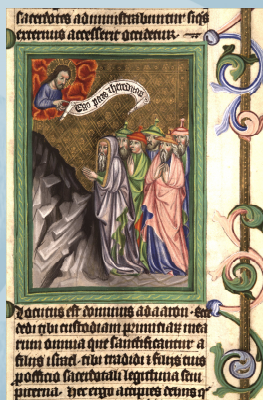 sacerdotes administrabuntur siqs
externus accesserit occidetur
Ego pars et hereditas
Locutus est dominus ad aaron Ecce
dedi tibi custodiam primiciarum mea
rum omnia que sanctificantur a
filiis israel tibi tradidi et filiis tuis
pro officio sacerdotali legittima sem
piterna Hec ergo accipies de his q